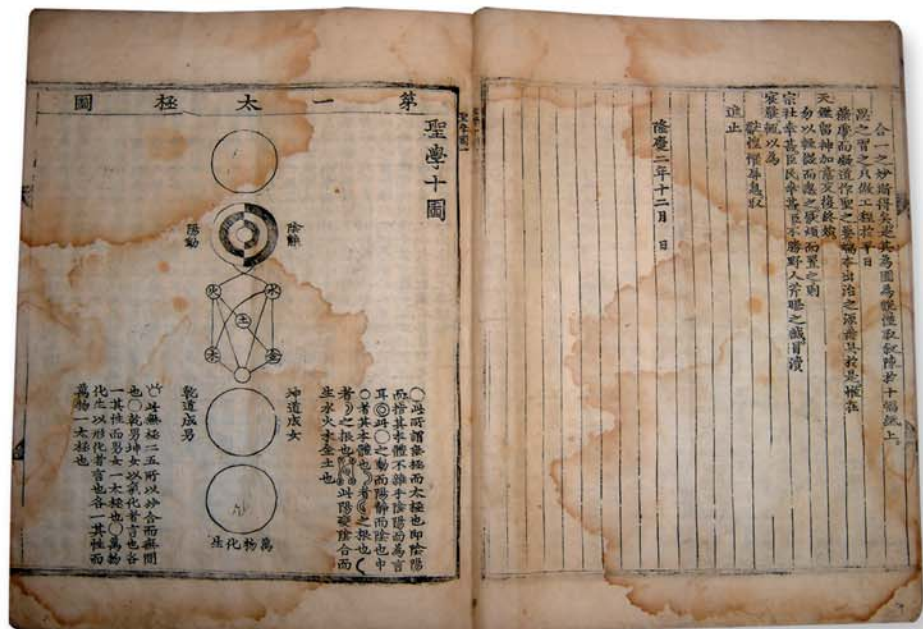 合一之妙漸得矣是其為圖為說僅取敍陳於十幅紙上
思之習之只做工程於平日
燕處而凝道作聖之要端本出治之源悉具於是惟在
天鑑留神加意反復終始
勿以輕微而忽之厭煩而置之則
宗社幸甚臣民幸甚臣不勝野人芹曝之誠冒瀆
宸嚴輒以為
獻惶懼屏息取
進止
隆慶二年十二月 日
第一太極圖
聖學十圖
陰靜
陽動
水
火
土
金
木
坤道成女
乾道成男
萬物化生
○此所謂無極而太極也即陰陽
而指其本體不雜乎陰陽而為言
耳◎此○之動而陽靜而陰也中
○者其本體也 者 之根也
者 之根也 此陽變陰合而
生水火木金土也
此無極二五所以妙合而無間
也○乾男坤女以氣化者言也各
一其性而男女一太極也○萬物
化生以形化者言也各一其性而
萬物一太極也